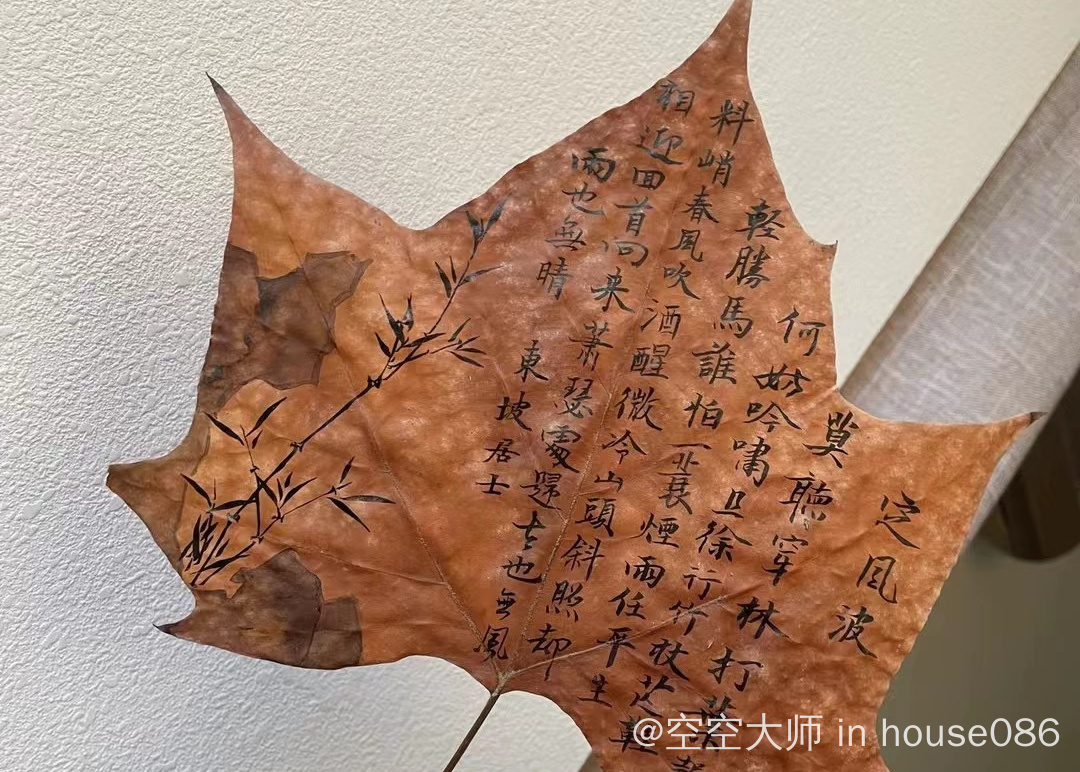 定風波
莫聽穿林打葉
何妨吟嘯且徐行竹杖芒鞋
輕勝馬誰怕一蓑煙雨任平生
料峭春風吹酒醒微冷山頭斜照却
相迎回首向来蕭瑟處歸去也無風
雨也無晴
東坡居士
@空空大师 in house086